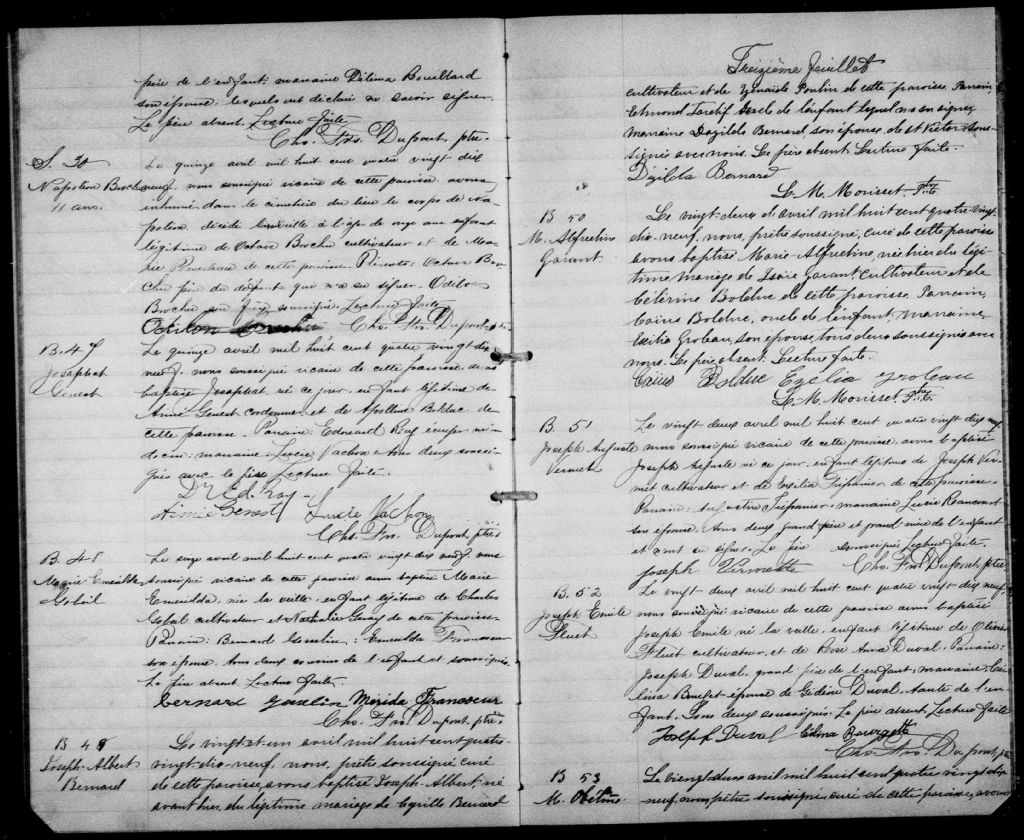 père de l'enfant: marraine Délima Bouillard
son épouse, lesquels ont déclaré ne savoir signer.
Le père absent. Lecture faite.
Chs. Frs. Dupont, ptre
S. 30
Napoléon
11 ans.
Le quinze avril mil huit cent quatre vingt dix
neuf, nous soussigné vicaire de cette paroisse avons
inhumé dans le cimetière du lieu le corps de Na-
poléon, décédé à l'âge de onze ans enfant
légitime de Octave cultivateur et de Ma-
rie de cette paroisse. Présents: Octave
père du défunt qui n'a su signer. Odilon
soussigné. Lecture faite.
Odilon Chs. Frs. Dupont, ptre
B. 47
Josaphat
Genest
Le quinze avril mil huit cent quatre vingt dix
neuf, nous soussigné vicaire de cette paroisse avons
baptisé Josaphat, né ce jour, enfant légitime de
Aimé Genest cordonnier et de Apolline Bolduc de
cette paroisse. Parrain: Edouard Roy écuyer mé-
decin: marraine Lucie Vachon tous deux soussi-
gnés avec le père. Lecture faite.
Dr Ed. Roy
Aimé Genest Lucie Vachon
Chs. Frs. Dupont, ptre
B. 48
Marie Emerilda
Gobeil
Le seize avril mil huit cent quatre vingt dix neuf, nous
soussigné vicaire de cette paroisse avons baptisé Marie
Emerilda, née la veille, enfant légitime de Charles
cultivateur et Nathalie de cette paroisse.
Parrain: Bernard Gosselin: Emerilda
son épouse. Tous deux cousins de l'enfant et soussignés.
Le père absent. Lecture faite.
Bernard Goselin Mérida Franceur
Chs. Frs. Dupont, ptre
B 49
Joseph-Albert
Bernard
Le vingt-et-un avril mil huit cent quatre-
vingt-dix-neuf, nous, prêtre soussigné curé
de cette paroisse, avons baptisé Joseph-Albert, né
avant hier, du légitime mariage de Cyrille Bernard
Treizième feuillet
cultivateur et de Zénaïde Poulin de cette paroisse. Parrain,
Edmond Tardif oncle de l'enfant lequel ne sa signer,
marraine Dazilda Bernard son épouse de St Victor sous-
signée avec nous. Le père absent. Lecture faite.
Dézilda Bernard
L. M. Morisset, Ptre
B 50
M. Alfredine
Garant
Le vingt-deux avril mil huit cent quatre vingt-
dix-neuf, nous, prêtre soussigné, curé de cette paroisse
avons baptisé Marie-Alfredine, née hier du légi-
time mariage de Isaïe Garant cultivateur et de
Célérine Bolduc de cette paroisse. Parrain,
Caïus Bolduc, oncle de l'enfant, marraine,
Exélia Groleau, son épouse, tous deux soussignés avec
nous. Le père absent. Lecture faite.
Caïus Bolduc Exelia Groleau
L. M. Morisset, Ptre
B. 51
Joseph Auguste
Vermet
Le vingt deux avril mil huit cent quatre vingt dix neuf
nous soussigné vicaire de cette paroisse avons baptisé
Joseph Auguste né ce jour, enfant légitime de Joseph Ver-
met cultivateur et de Exilia Trépanier de cette paroisse.
Parrain: Auguste Trépanier, marraine Lucie Rancourt
son épouse. Tous deux grand père et grand mère de l'enfant
et n'ont su signer. Le père soussigné. Lecture faite.
Joseph Vermette Chs. Frs. Dupont, ptre
B. 52
Joseph Emile
Pluet
Le vingt deux avril mil huit cent quatre vingt dix neuf,
nous soussigné vicaire de cette paroisse avons baptisé
Joseph Emile né la veille, enfant légitime de Olivier
cultivateur, et de Rose Anna Duval. Parrain:
Joseph Duval, grand père de l'enfant, marraine,
épouse de Gédéon Duval, tante de l'en-
fant. Tous deux soussignés. Le père absent. Lecture faite
Joseph Duval
Chs. Frs. Dupont, ptre
B 53
M.
Le vingt deux avril mil huit cent quatre vingt dix
neuf, nous prêtre soussigné, curé de cette paroisse, avons